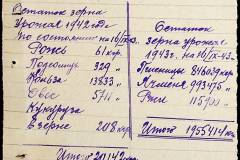 Остаток зерна
Урожая 1942 года
по состоянию на 16/IX
Рожь 61 кгр.
Подсолнух 329 "
Польза 13833 "
Овес 5711 "
Кукуруза
в зерне 208 кгр.
Итого 20142 кгр.
Остаток
зерна урожая
1943 г. на 16/IX-43
Пшеницы 846039 кгр
Ячменя 993475 "
Ржи 115900 "
Итого 1955414 кгр